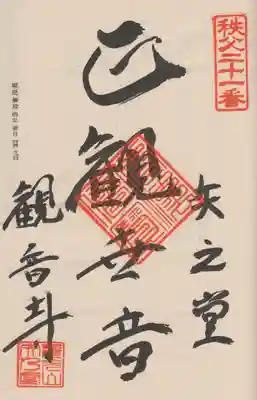 秩父二十一番
矢之堂
正観世音
観音寺